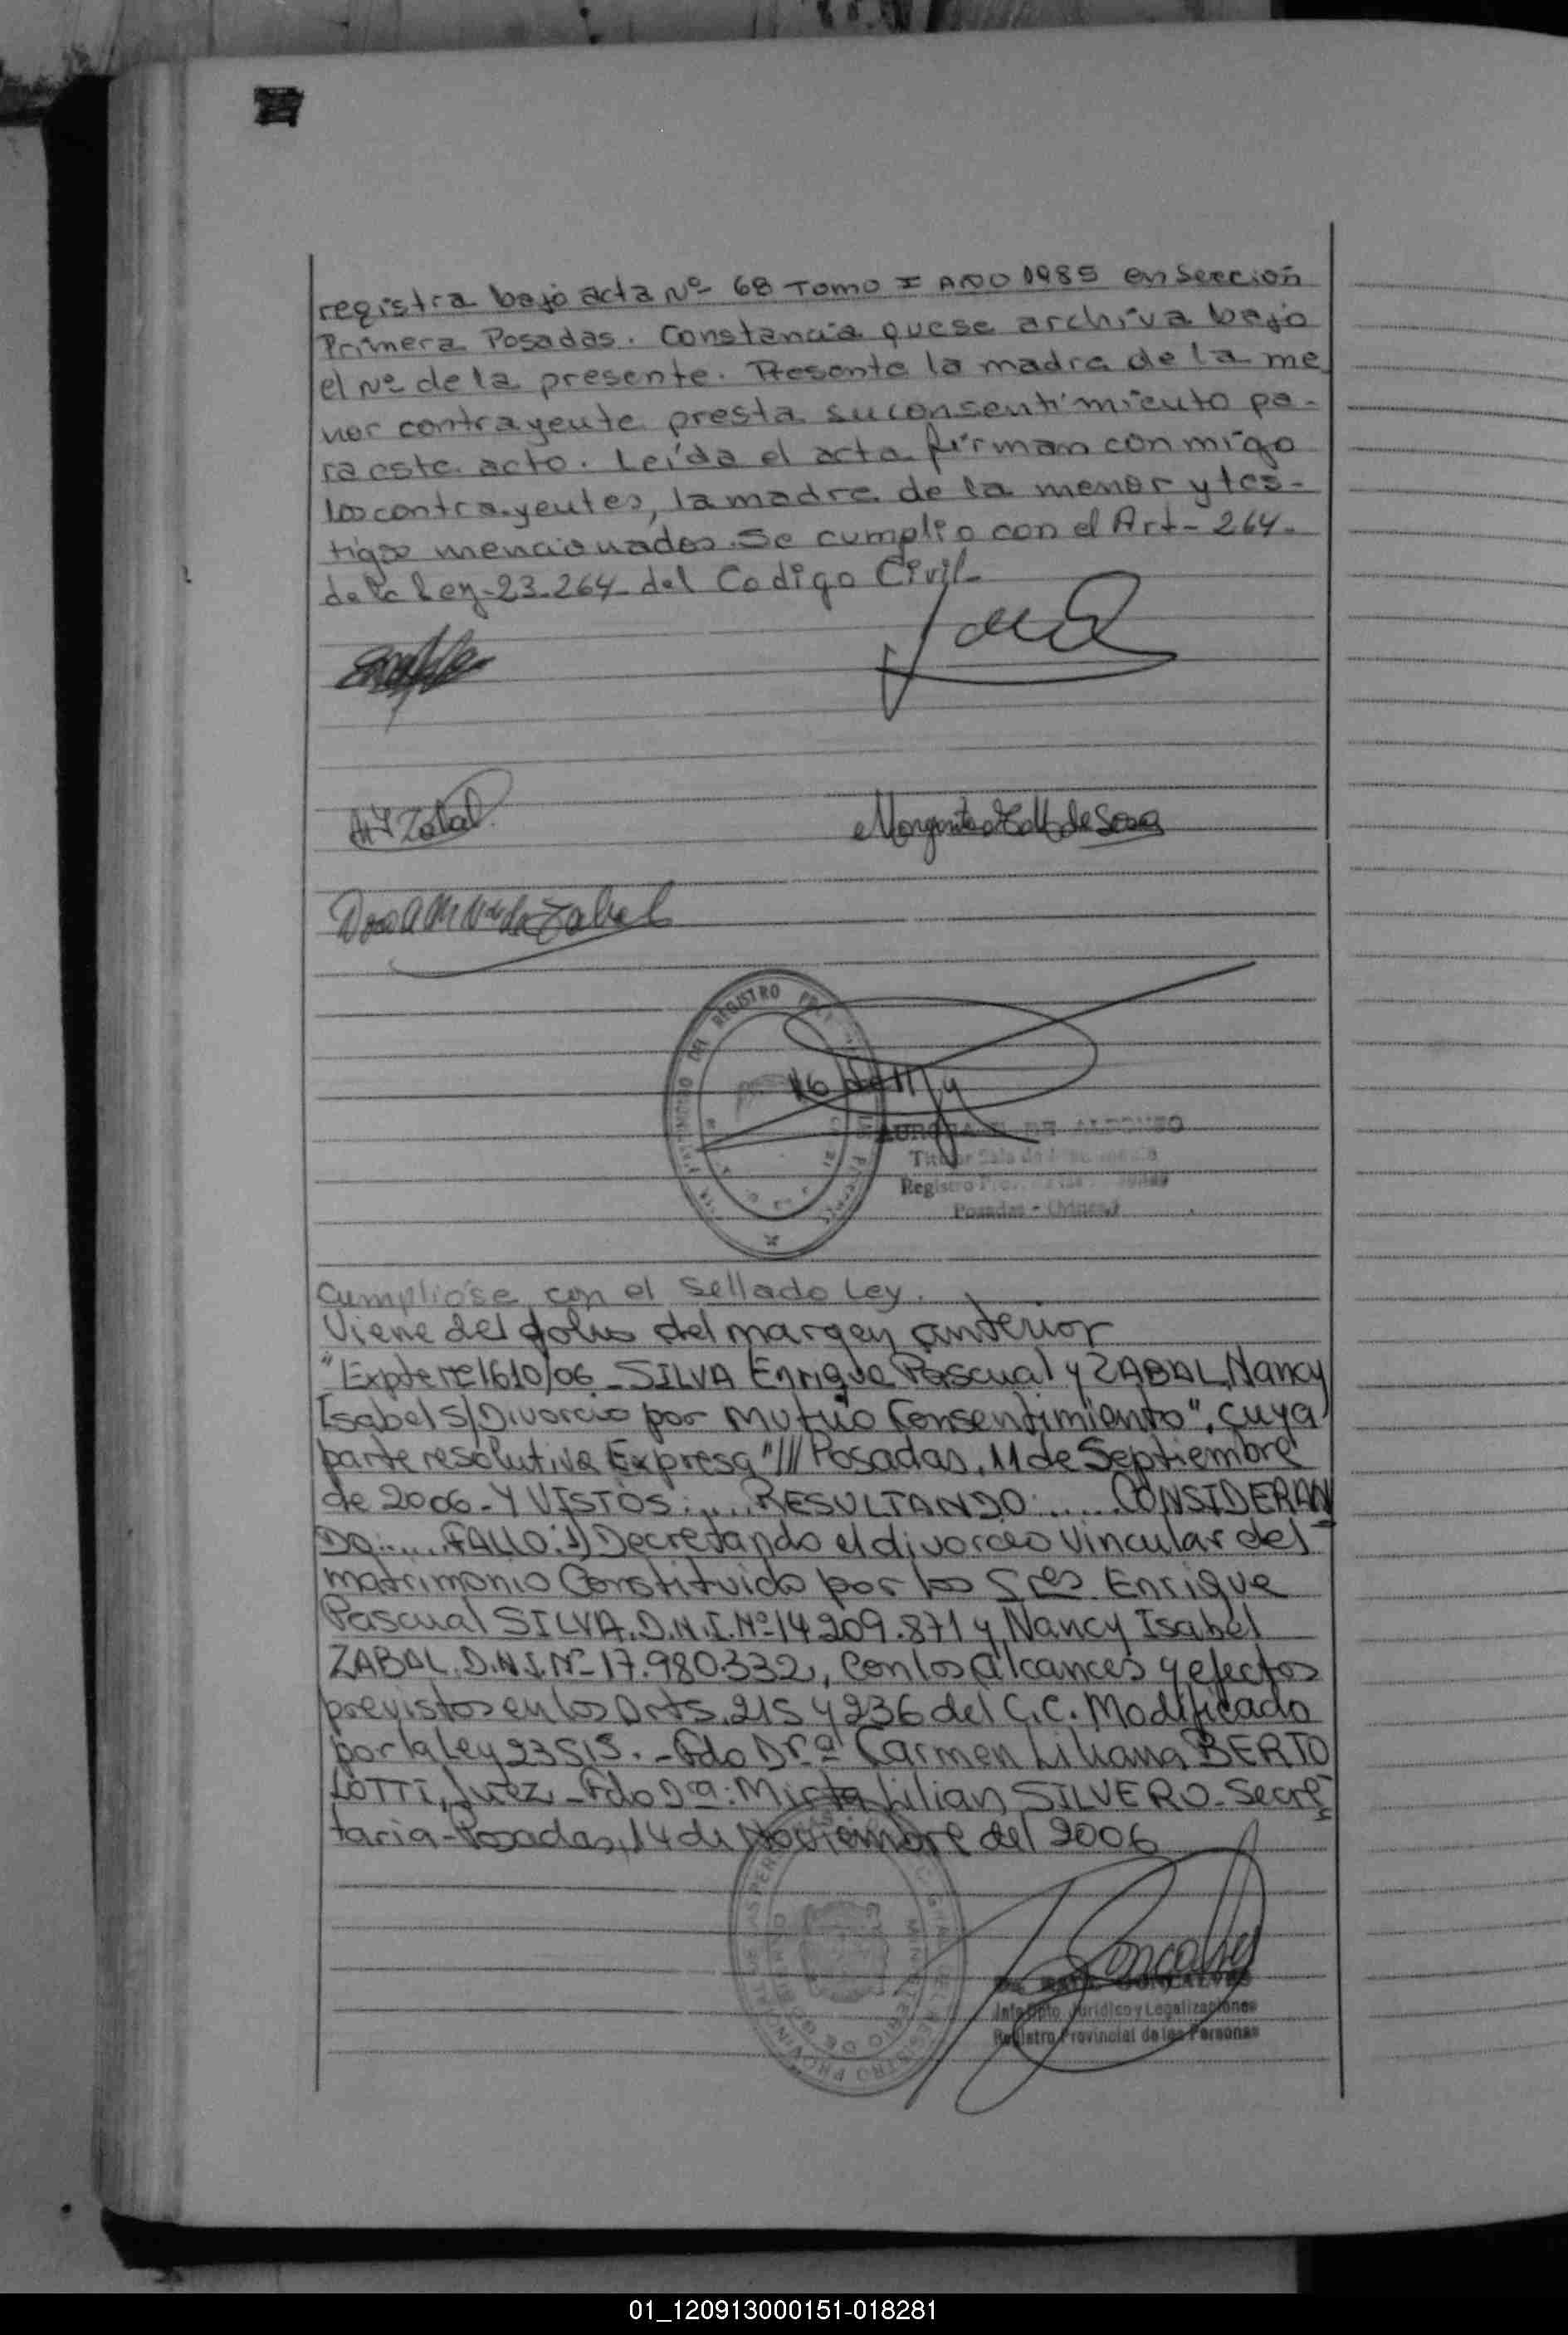 registra bajo acta Nº 68 Tomo I AÑO 1985 en Sección
Primera Posadas. Constancia quese archiva bajo
el Nº de la presente. Presente la madre de la me
nor contrayente presta suconsentimiento pa-
ra este acto. Leída el acta firman conmigo
los contrayentes, la madre de la menor y tes-
tigos mencionados. Se cumplio con el Art- 264.
de la Ley-23.264 del Codigo Civil-
Zabal
Margarita de Sosa
de Zabal
REGISTRO
16 de My
Registro
Posadas - (Mnes.)
Cumplióse con el Sellado Ley.
Viene del folio del margen anterior
"Expte nº 1610/06 - SILVA Enrique Pascual y ZABAL Nancy
Isabel S/Divorcio por Mutuo Consentimiento", cuya
parte resolutiva Expresa "/// Posadas, 11 de Septiembre
de 2006- Y VISTOS:.... RESULTANDO:.... CONSIDERAN
DO:.... FALLO: 1) Decretando el divorcio Vincular del
matrimonio Constituido por los Sres Enrique
Pascual SILVA, D.N.I. Nº 14 209.871 y Nancy Isabel
ZABAL. D.N.I. Nº- 17.980.332, Con los alcances y efectos
previstos en los Arts. 215 y 236 del C.C. Modificado
por la Ley 23515. - Fdo Drª Carmen Liliana BERTO
LOTTI, Juez - Fdo Dª: Mirta Lilian SILVERO- Secre
taria- Posadas, 14 de Noviembre del 2006
MINISTERIO DE GOBIERNO
GONÇALVES
Jefe Dpto. Jurídico y Legalizaciones
Registro Provincial de las Personas
01_120913000151-018281